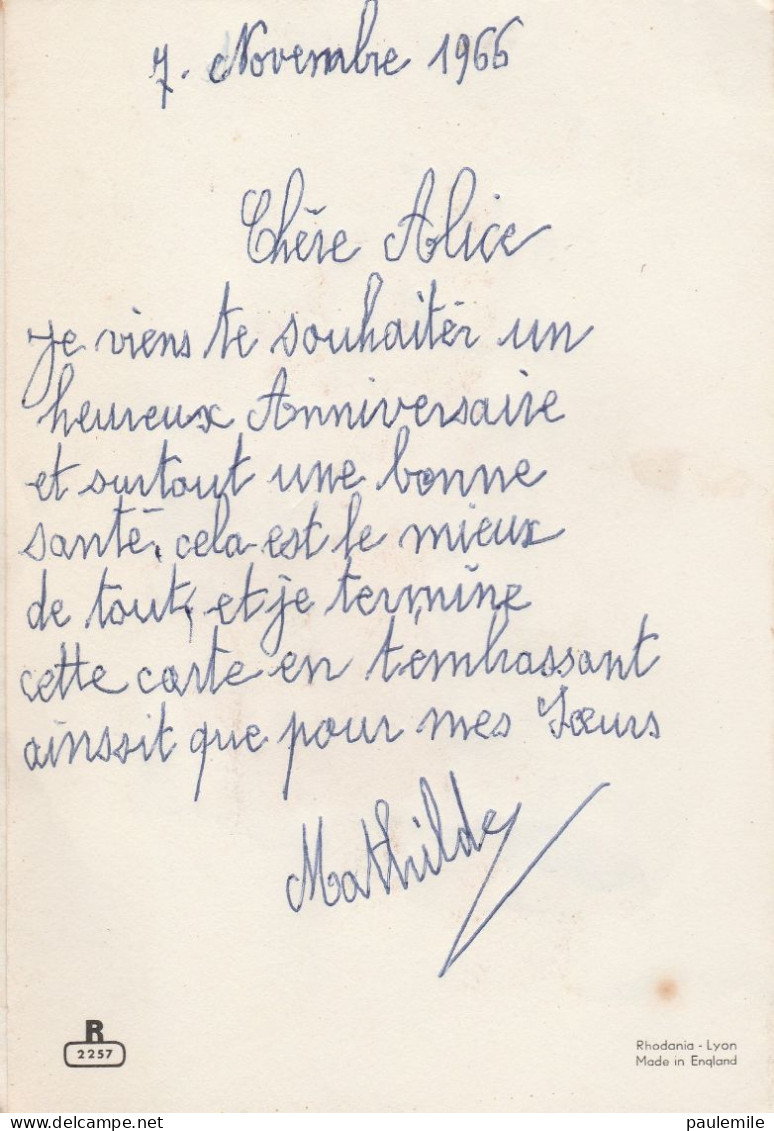 7. Novembre 1966
Chère Alice
Je viens te souhaitér un
heureux Anniversaire
et surtout une bonne
santé, cela est le mieux
de tout, et je termine
cette carte en t'embrassant
ainssit que pour mes Sœurs
Mathilde
R
2257
Rhodania - Lyon
Made in England
paulemile